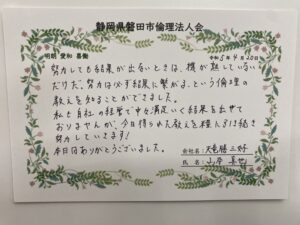 静岡県磐田市倫理法人会
明朗 愛和 喜働
令和5年4月20日
努力しても結果が出ないときは、機が熟していない
だけだ、努力は必ず結果に繋がる。という倫理の
教えを知ることができました。
私も自社の経営で中々満足いく結果を出せて
おりませんが、今日得られた教えを糧に
努力していきます!
本日はありがとうございました。
会社名:天竜勝三
氏名:山本